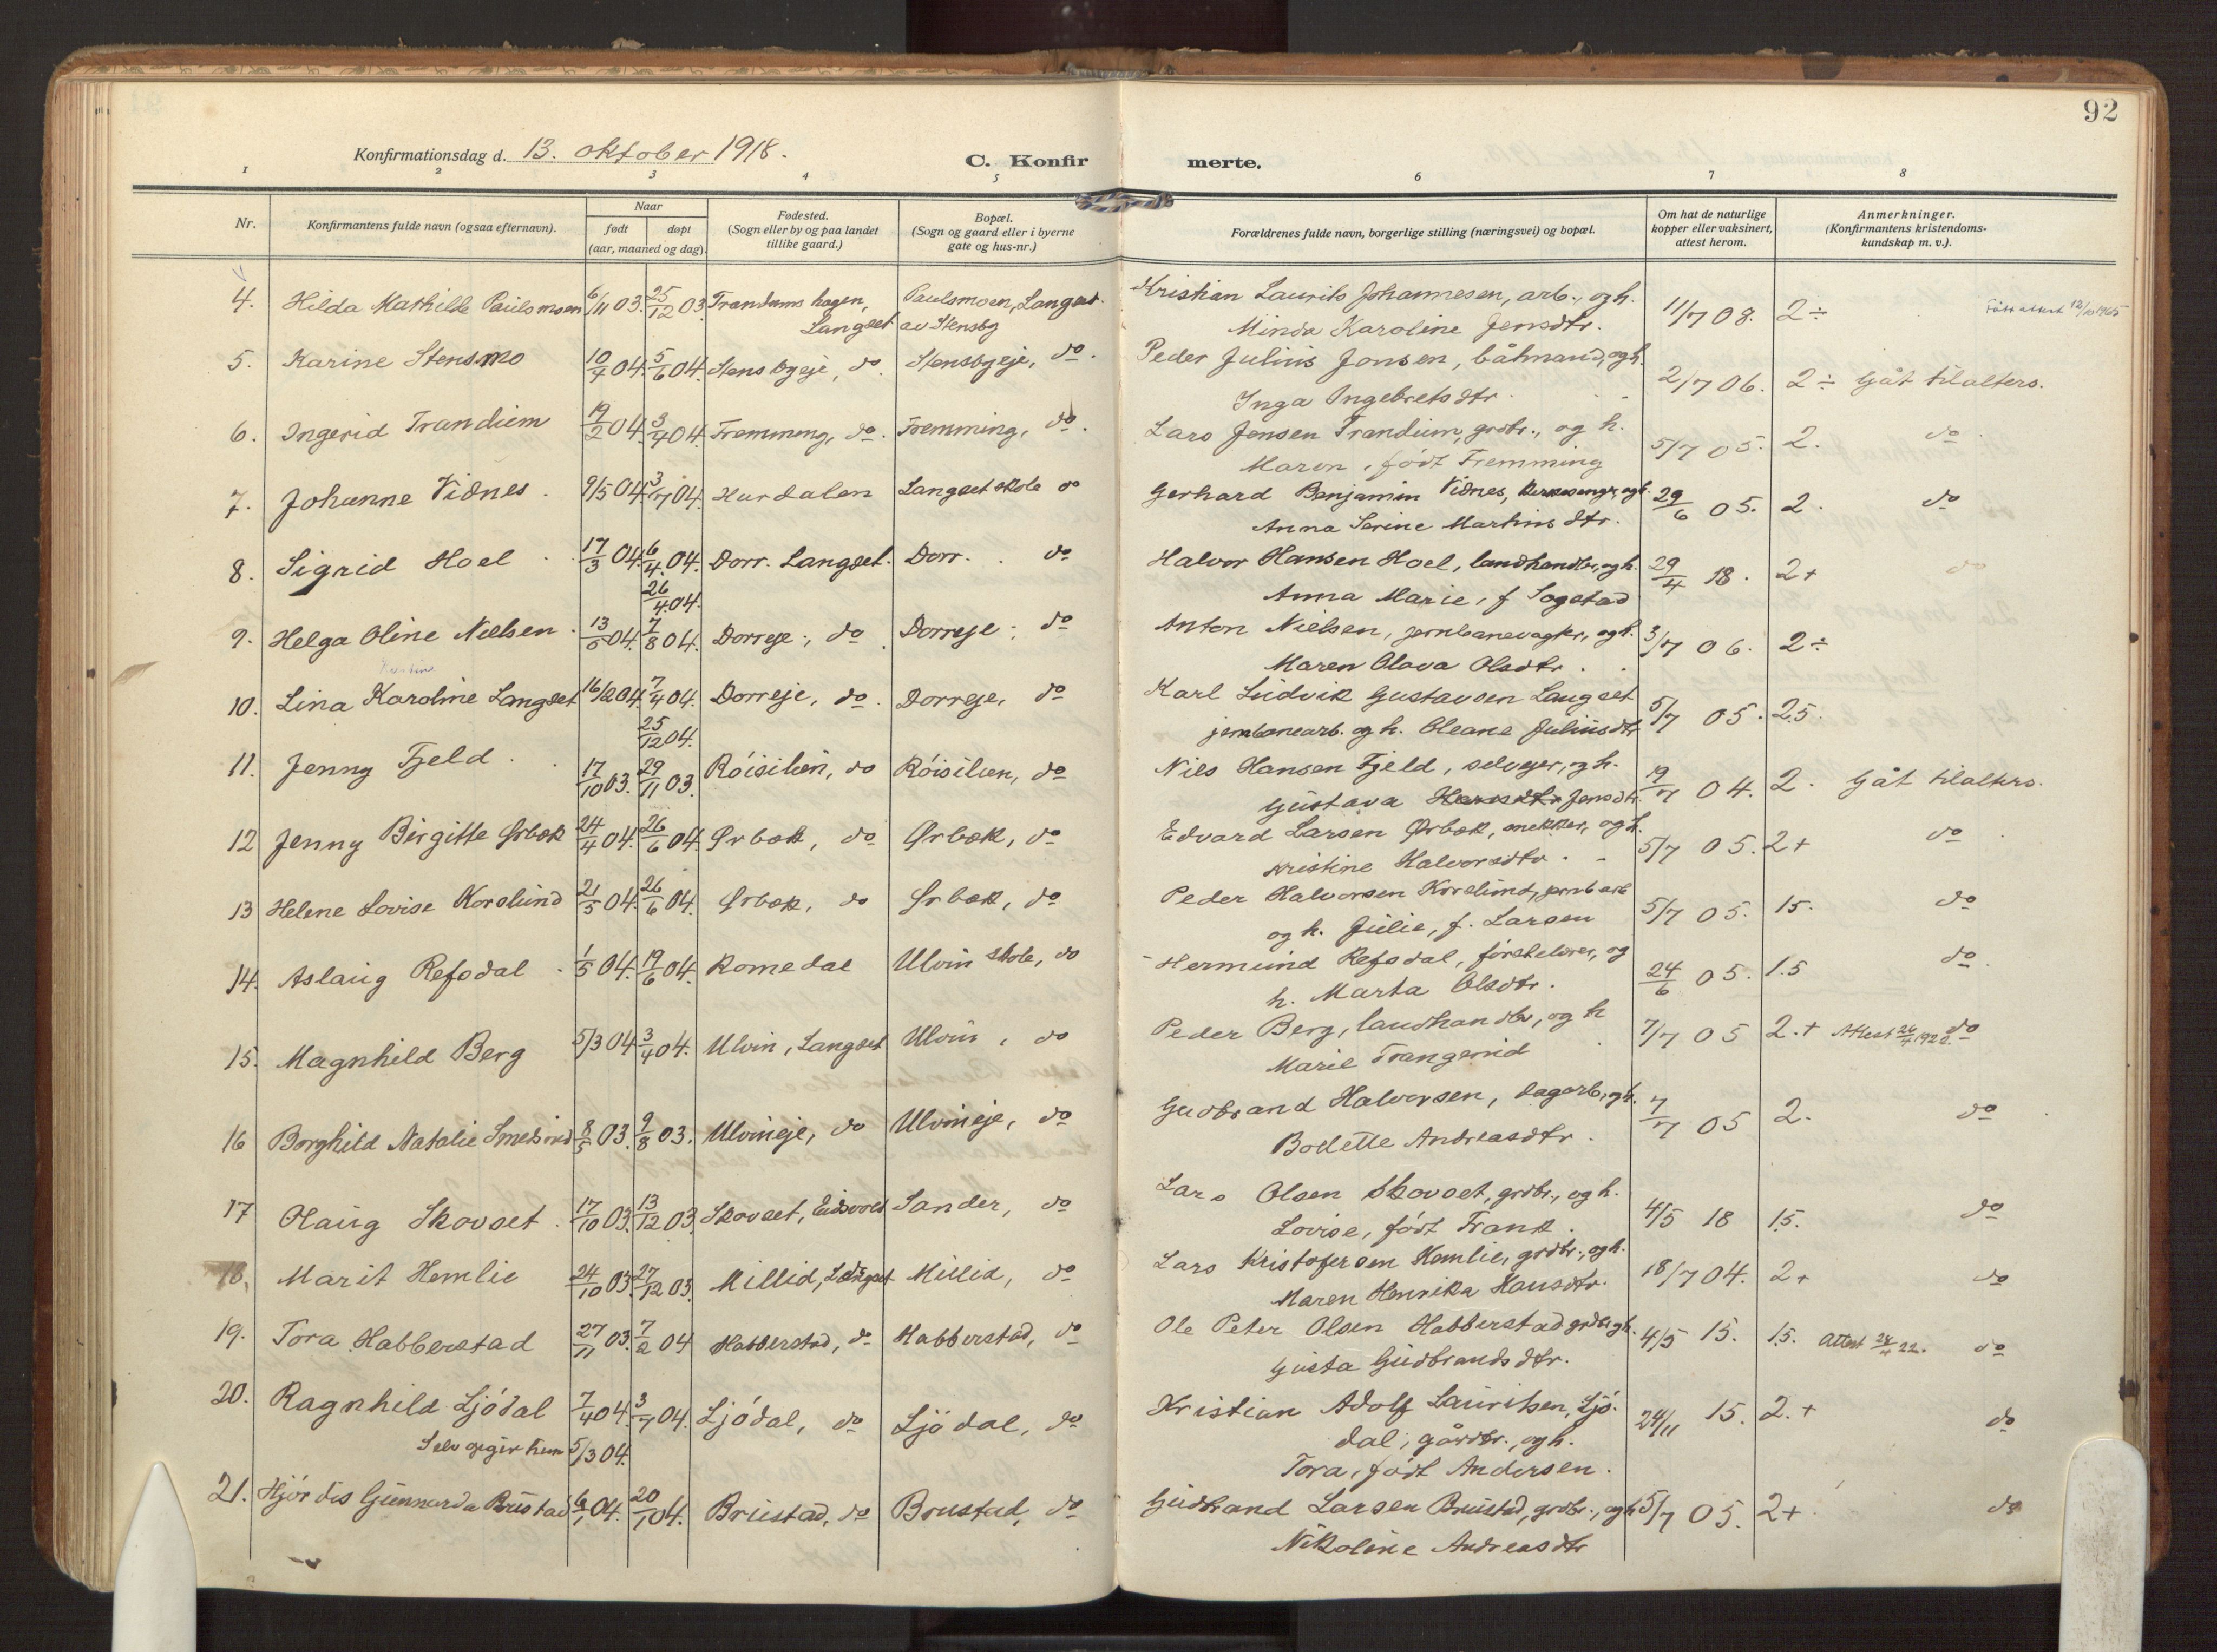 92
Konfirmationsdag d. 13. oktober 1918.
C. Konfir merte.
1 2 3 4 5 6 7 8
Nr.
Konfirmantens fulde navn (ogsaa efternavn).
Naar
født døpt
(aar, maaned og dag).
Fødested.
(Sogn eller by og paa landet
tillike gaard.)
Bopæl.
(Sogn og gaard eller i byerne
gate og hus-nr.)
Forældrenes fulde navn, borgerlige stilling (næringsvei) og bopæl.
Om hat de naturlige
kopper eller vaksinert,
attest herom.
Anmerkninger.
(Konfirmantens kristendoms-
kundskap m. v.).
4. Hilda Mathilde Paulsmoen 6/11 03. 25/12 03. Trandums hagen, Paulsmoen, Langset. Kristian Laurits Johannesen, arb., og h. 11/7 08. 2÷ 12/10 1965
Langset av Stensby Minda Karoline Jensdtr.
5. Karine Stensmo 10/4 04. 5/6 04. Stensbyeje, do. Stensbyeje, do. Peder Julius Jonsen, båtmand, og h. 2/7 06. 2÷ Gåt til alters.
Inga Ingebretsdtr.
6. Ingerid Trandum 19/2 04. 3/4 04. Fremming, do. Fremming, do. Lars Jensen Trandum, grdbr., og h. 5/7 05. 2. do.
Maren, født Fremming
7. Johanne Vidnes. 9/5 04. 3/7 04. Hurdalen Langset skole do Gerhard Benjamin Vidnes, kirkesanger, og h. 29/6 05. 2. do
Anna Serine Martinsdtr.
8. Sigrid Hoel 17/3 04. 6/4 04. Dorr. Langset. Dorr. do Halvor Hansen Hoel, landhandler, og h. 29/4 18. 2+ do
26/4 04. Anna Marie, f Sogstad
9. Helga Oline Nielsen. 13/5 04. 7/8 04. Dorreje, do. Dorreje, do Anton Nielsen, jernbanevagter, og h. 3/7 06. 2÷
Maren Olava Olsdtr.
10. Lina Karoline Langset 16/2 04. 7/4 04. Dorreje, do. Dorreje, do Karl Ludvik Gustavsen Langset 5/7 05. 2.5.
25/12 04. jernbanearb. og h. Oleane Juliusdtr
11. Jenny Fjeld. 17/10 03. 29/11 03. Röisilien, do Röisilien, do Nils Hansen Fjeld, selvejer, og h. 19/7 04. 2. Gåt til alters.
Gustava Jensdtr.
12 Jenny Birgitte Ørbæk 24/4 04. 26/6 04. Ørbæk, do Ørbæk, do Edvard Larsen Ørbæk, snekker, og h. 5/7 05. 2+ do
Kristine Halvorsdtr.
13 Helene Lovise Korslund 21/5 04. 26/6 04. Ørbæk, do Ørbæk, do Peder Halvorsen Korslund, jernb arb 5/7 05. 1.5. do
og h. Julie, f. Larsen
14. Aslaug Refsdal. 1/5 04. 19/6 04. Romedal Ulvin skole, do Hermund Refsdal, førstelærer, og 24/6 05. 1.5 do.
h. Marta Olsdtr.
15. Magnhild Berg 5/3 04 3/4 04. Ulvin, Langset Ulvin, do Peder Berg, landhandler, og h 7/7 05 2.+ Attest 26/4 1922. do
Marie Trangerud
16 Borghild Natalie 8/5 03. 9/8 03. Ulvineje, do Ulvineje, do Gudbrand Halvorsen, dagarb., og h. 7/7 05 2. do
Bolette Andreasdtr.
17 Olaug Skovset. 17/10 03. 13/12 03. Skovset, Eidsvold Sander, do Lars Olsen Skovset, grdbr., og h. 4/5 18 1.5. do
Lovise, født Frank.
18. Marit Hemlie 24/10 03. 27/12 03. Millid, Langset Millid, do Lars Kristofersen Hemlie, grdbr., og h. 18/7 04. 2+ do
Maren Henrika Hansdtr.
19. Tora Habberstad 27/11 03. 7/2 04 Habberstad, do Habberstad, do Ole Peter Olsen Habberstad grdbr og h. 4/5 15. 1.5. Attest 24/4 22. do
Gusta Gudbrandsdtr.
20. Ragnhild Ljödal 7/4 04. 3/7 04. Ljödal, do Ljödal, do Kristian Adolf Lauritsen, Ljö- 24/11 15. 2.+ do
Selv opgir hun 5/3 04. dal, gårdbr., og h.
Tora, født Andersen.
21. Hjördis Gunnarda Brustad 6/1 04. 20/1 04. Brustad, do Brustad, do Gudbrand Larsen Brustad, grdbr., og h 5/7 05. 2+ do
Nikoline Andreasdtr